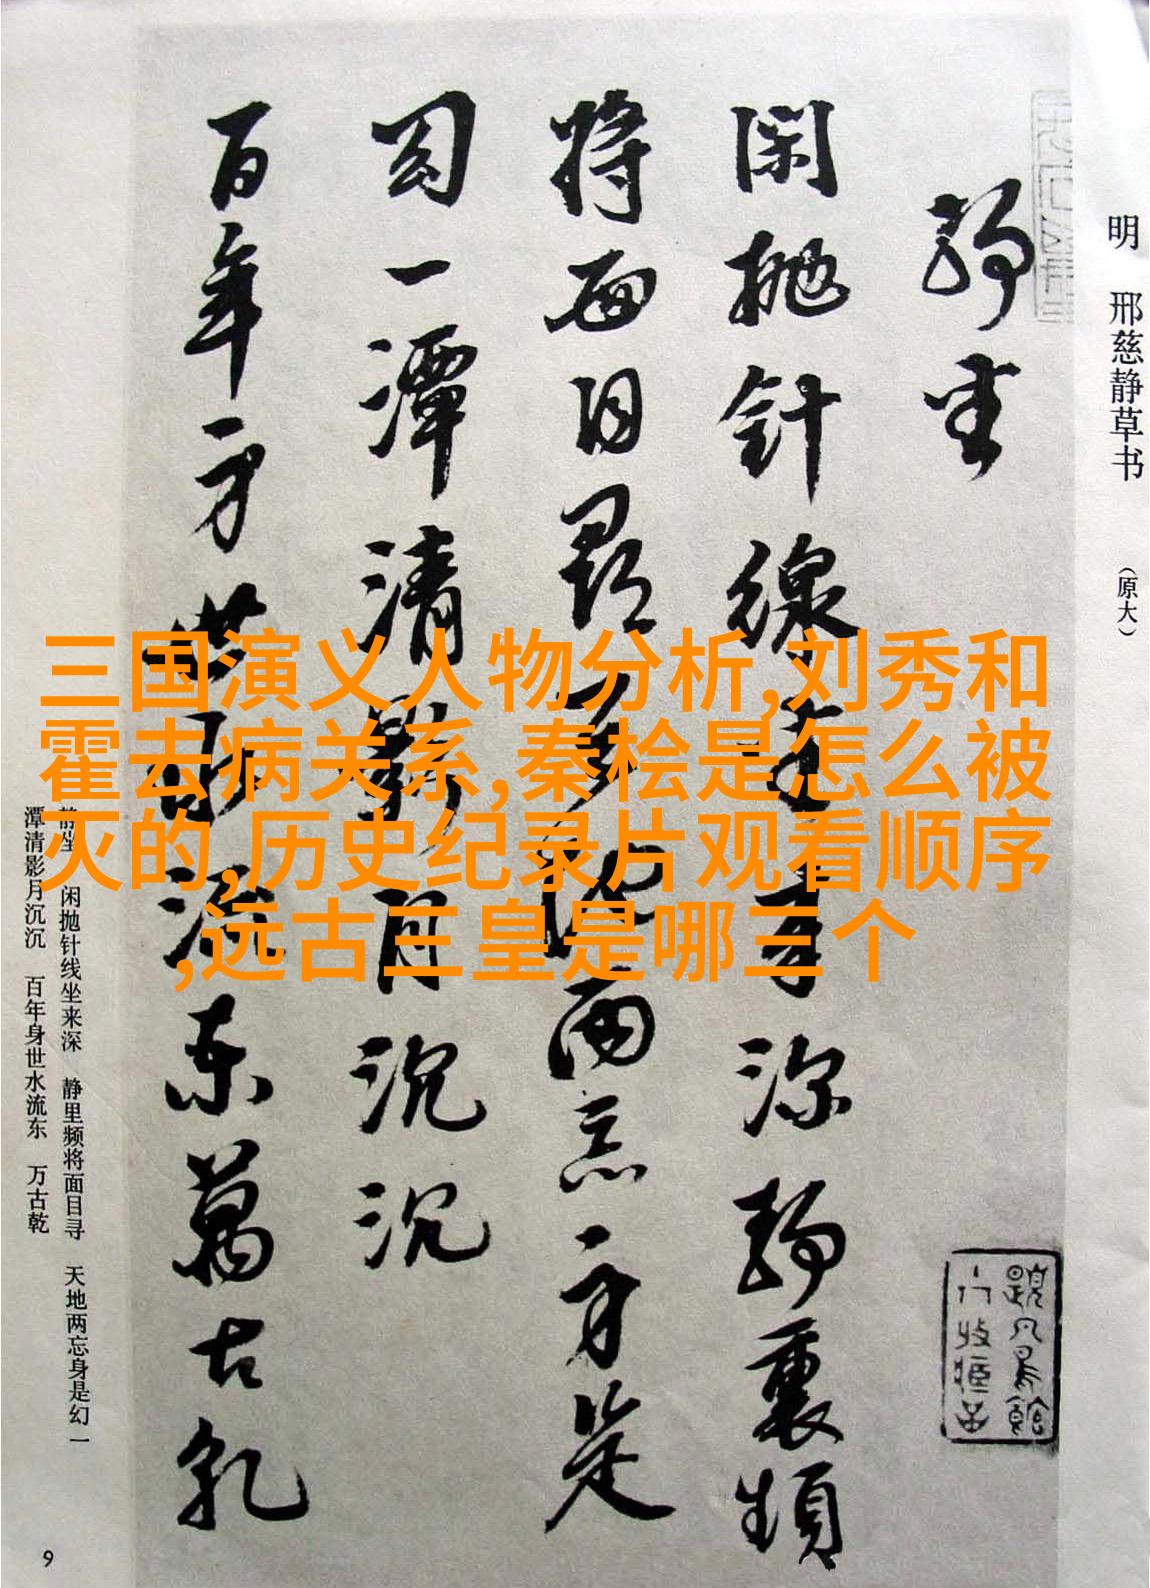 明 邢慈静草书 （原大）
静坐
闲抛针线坐来深静里频
将面目寻天地两忘身是
幻一潭清影月沉沉
百年身世水流东万古乾
三国演义人物分析,刘秀和
霍去病关系,秦桧是怎么被
灭的,历史纪录片观看顺序
,远古三皇是哪三个
静坐 闲抛针线坐来深 静里频将面目寻 天地两忘身是幻 一
潭清影月沉沉 百年身世水流东 万古乾
9